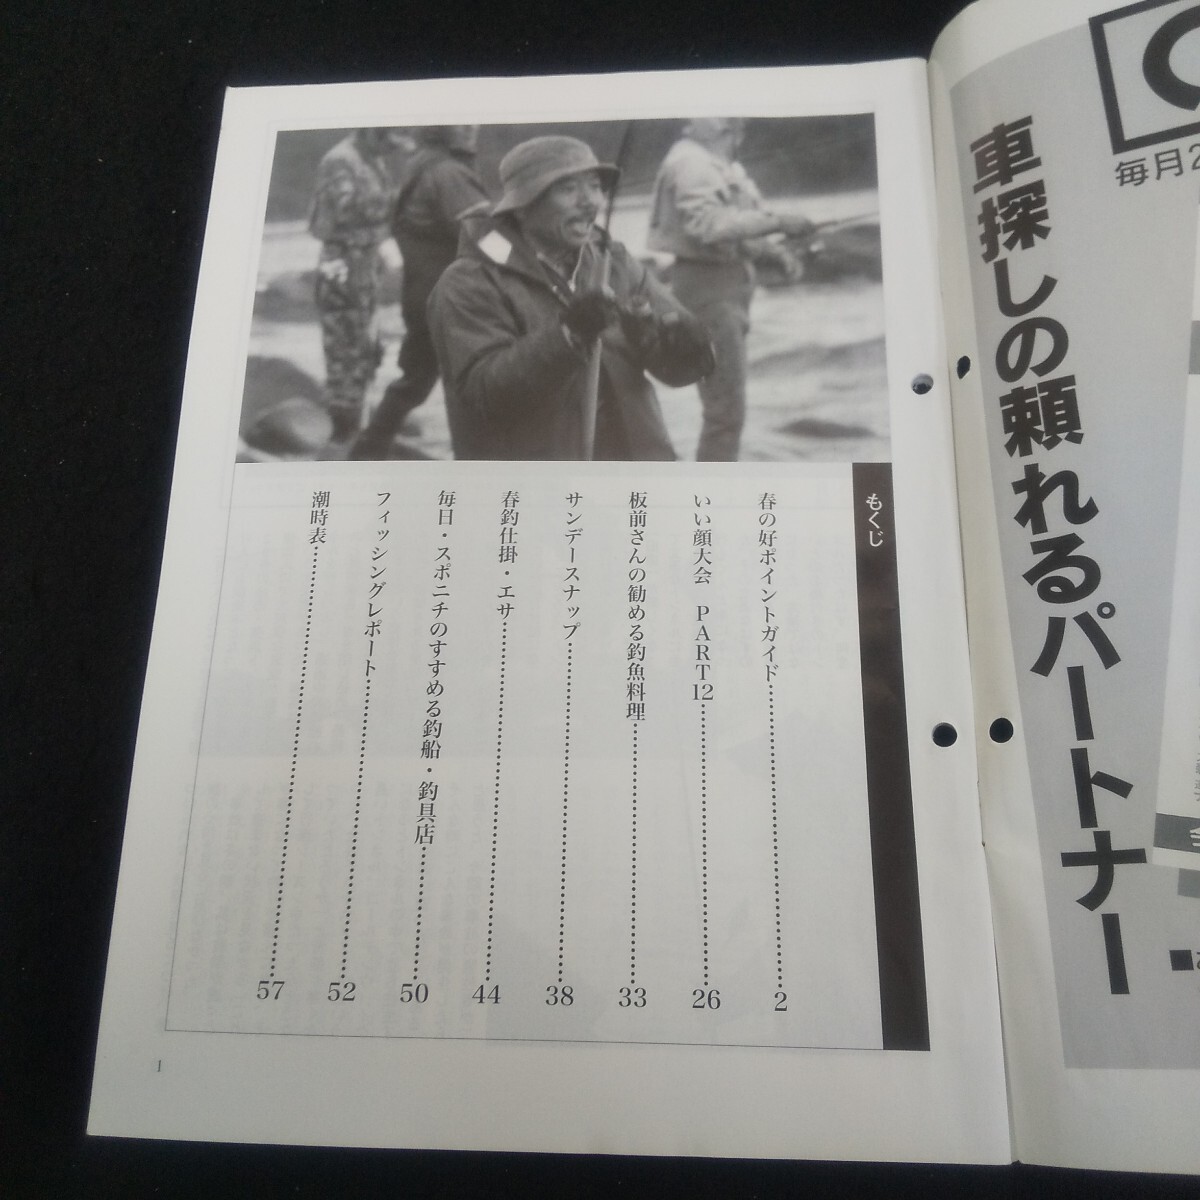 車探しの頼れるパートナー
毎月2
もくじ
春の好ポイントガイド……2
いい顔大会 PART12……26
板前さんの勧める釣魚料理……33
サンデースナップ……38
春釣仕掛・エサ……44
毎日・スポニチのすすめる釣船・釣具店……50
フィッシングレポート……52
潮時表……57
1